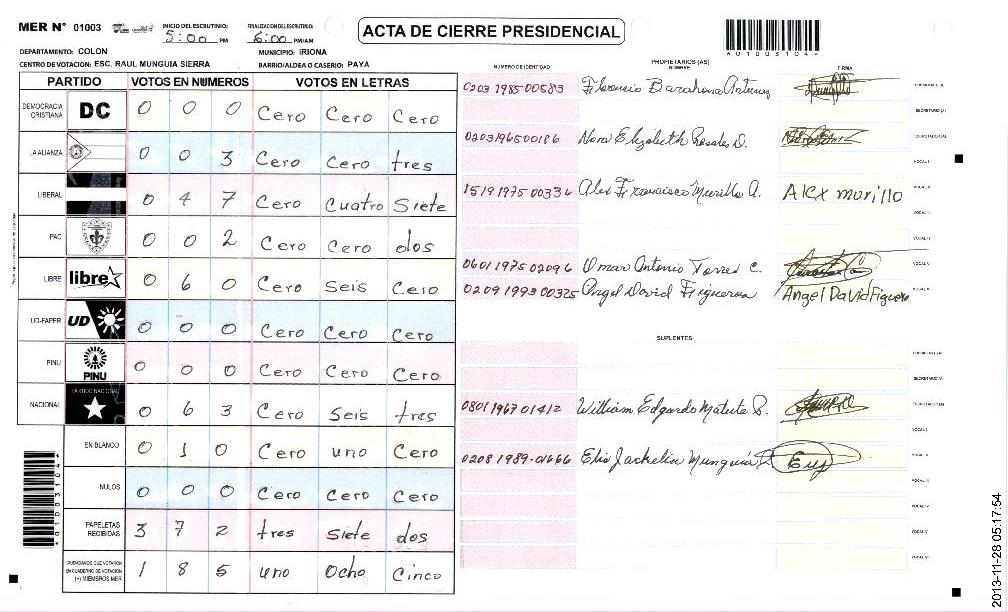 MER N° 01003
INICIO DEL ESCRUTINIO: 5:00 PM
FINALIZACION DEL ESCRUTINIO: 6:00 PM/AM
ACTA DE CIERRE PRESIDENCIAL
4010031044
DEPARTAMENTO: COLON
MUNICIPIO: IRIONA
CENTRO DE VOTACION: ESC. RAUL MUNGUIA SIERRA
BARRIO/ALDEA O CASERIO: PAYA
PARTIDO VOTOS EN NUMEROS VOTOS EN LETRAS
DEMOCRACIA CRISTIANA DC 0 0 0 Cero Cero Cero
LA ALIANZA 0 0 3 Cero Cero tres
LIBERAL 0 4 7 Cero Cuatro Siete
PAC 0 0 2 Cero Cero dos
LIBRE libre 0 6 0 Cero Seis Cero
UD-FAPER UD 0 0 0 Cero Cero Cero
PINU PINU 0 0 0 Cero Cero Cero
NACIONAL PARTIDO NACIONAL 0 6 3 Cero Seis tres
EN BLANCO 0 1 0 Cero uno Cero
NULOS 0 0 0 Cero Cero Cero
PAPELETAS RECIBIDAS 3 7 2 tres Siete dos
CIUDADANOS QUE VOTARON EN CUADERNO DE VOTACION (+) MIEMBROS MER 1 8 5 uno Ocho Cinco
NUMERO DE IDENTIDAD PROPIETARIOS (AS) NOMBRE FIRMA
0203 1985 00583 Florencio Barahona PRESIDENTE (A)
SECRETARIO (A)
0203196500186 Nora Elizabeth Rosales D. ESCRUTADOR (A)
VOCAL I
1519 1975 00336 Alex Francisco Murillo A. Alex murillo VOCAL II
VOCAL III
VOCAL IV
0601 1975 02096 Omar Antonio Torres C. VOCAL V
0209 1993 00325 Angel David Figueroa Angel David Figueroa VOCAL VI
SUPLENTES
PRESIDENTE (A)
SECRETARIO (A)
0801 1967 01412 William Edgardo Matute S. ESCRUTADOR (A)
VOCAL I
0208 1989-01666 Elis Jackelin Munguia VOCAL II
VOCAL III
VOCAL IV
VOCAL V
VOCAL VI
4010031044
2013-11-28 05:17:54